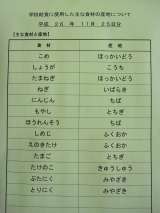 学校給食に使用した主な食材の産地について
平成 26年 11月 25日分
【主な食材と産地】
食材 産地
こめ ほっかいどう
しょうが こうち
たまねぎ ほっかいどう
ねぎ いばらき
にんじん ちば
もやし とちぎ
ほうれんそう ちば
しめじ ふくおか
えのきたけ ふくおか
たまご とちぎ
たけのこ きゅうしゅう
ぶたにく みやざき
とりにく みやざき